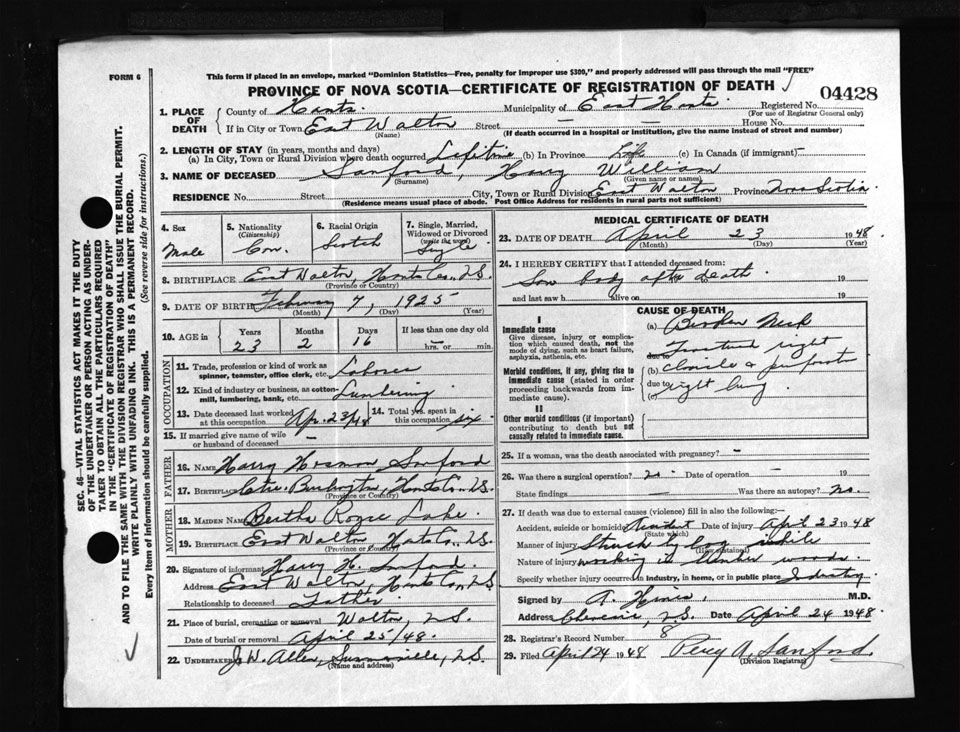 FORM 6
This form if placed in an envelope, marked "Dominion Statistics—Free, penalty for improper use $300," and properly addressed will pass through the mail "FREE"
PROVINCE OF NOVA SCOTIA—CERTIFICATE OF REGISTRATION OF DEATH
04428
1. PLACE OF DEATH
County of Hants. Municipality of East Hants. Registered No.
(For use of Registrar General only)
If in City or Town East Walton Street — House No. —
(Name) (If death occurred in a hospital or institution, give the name instead of street and number)
2. LENGTH OF STAY (in years, months and days)
(a) In City, Town or Rural Division where death occurred Lifetime (b) In Province Life (c) In Canada (if immigrant) -
3. NAME OF DECEASED Sanford, Harry William
(Surname) (Given name or names)
RESIDENCE No. Street City, Town or Rural Division East Walton Province Nova Scotia
(Residence means usual place of abode. Post Office Address for residents in rural parts not sufficient)
SEC. 46—VITAL STATISTICS ACT MAKES IT THE DUTY
OF THE UNDERTAKER OR PERSON ACTING AS UNDER-
TAKER TO OBTAIN ALL THE PARTICULARS REQUIRED
IN THE "CERTIFICATE OF REGISTRATION OF DEATH"
AND TO FILE THE SAME WITH THE DIVISION REGISTRAR WHO SHALL ISSUE THE BURIAL PERMIT.
WRITE PLAINLY WITH UNFADING INK. THIS IS A PERMANENT RECORD.
Every item of information should be carefully supplied. (See reverse side for instructions.)
4. Sex
Male
5. Nationality
(Citizenship)
Can.
6. Racial Origin
Scotch
7. Single, Married, Widowed or Divorced
(write the word)
Single
8. BIRTHPLACE East Walton, Hants Co., N.S.
(Province or Country)
9. DATE OF BIRTH February 7, 1925
(Month) (Day) (Year)
10. AGE in Years Months Days If less than one day old
23 2 16 hrs. or min.
OCCUPATION
11. Trade, profession or kind of work as spinner, teamster, office clerk, etc. Laborer
12. Kind of industry or business, as cotton-mill, lumbering, bank, etc. Lumbering
13. Date deceased last worked at this occupation Apr. 23/48
14. Total yrs. spent in this occupation six
15. If married give name of wife or husband of deceased -
FATHER
16. NAME Harry Hosmon Sanford
17. BIRTHPLACE Ctre. Burlington, Hants Co., N.S.
(Province or Country)
MOTHER
18. MAIDEN NAME Bertha Lake
19. BIRTHPLACE East Walton, Hants Co., N.S.
(Province or Country)
20. Signature of informant Harry H. Sanford
Address East Walton, Hants Co., N.S.
Relationship to deceased Father
21. Place of burial, cremation or removal Walton, N.S.
Date of burial or removal April 25/48.
22. UNDERTAKER J. W. Allen, N.S.
(Name and address)
MEDICAL CERTIFICATE OF DEATH
23. DATE OF DEATH April 23 1948
(Month) (Day) (Year)
24. I HEREBY CERTIFY that I attended deceased from:
Saw body after death. 19
and last saw h alive on 19
CAUSE OF DEATH
I
Immediate cause
Give disease, injury or complication which caused death, not the mode of dying, such as heart failure, asphyxia, asthenia, etc.
(a) Broken Neck
due to Fractured right
Morbid conditions, if any, giving rise to immediate cause (stated in order proceeding backwards from immediate cause).
(b) clavicle &
due to right lung
(c)
II
Other morbid conditions (if important) contributing to death but not causally related to immediate cause.
25. If a woman, was the death associated with pregnancy? -
26. Was there a surgical operation? no. Date of operation -
State findings — Was there an autopsy? no.
27. If death due to external causes (violence) fill in also the following:—
Accident, suicide or homicide Accident Date of injury April 23 1948
(State which)
Manner of injury Struck by log while
(How sustained)
Nature of injury working in lumber woods.
Specify whether injury occurred in industry, in home, or in public place Industry
Signed by A. M.D.
Address N.S. Date April 24 1948.
28. Registrar's Record Number 8
29. Filed April 24 1948 Percy A. Sanford
(Division Registrar)